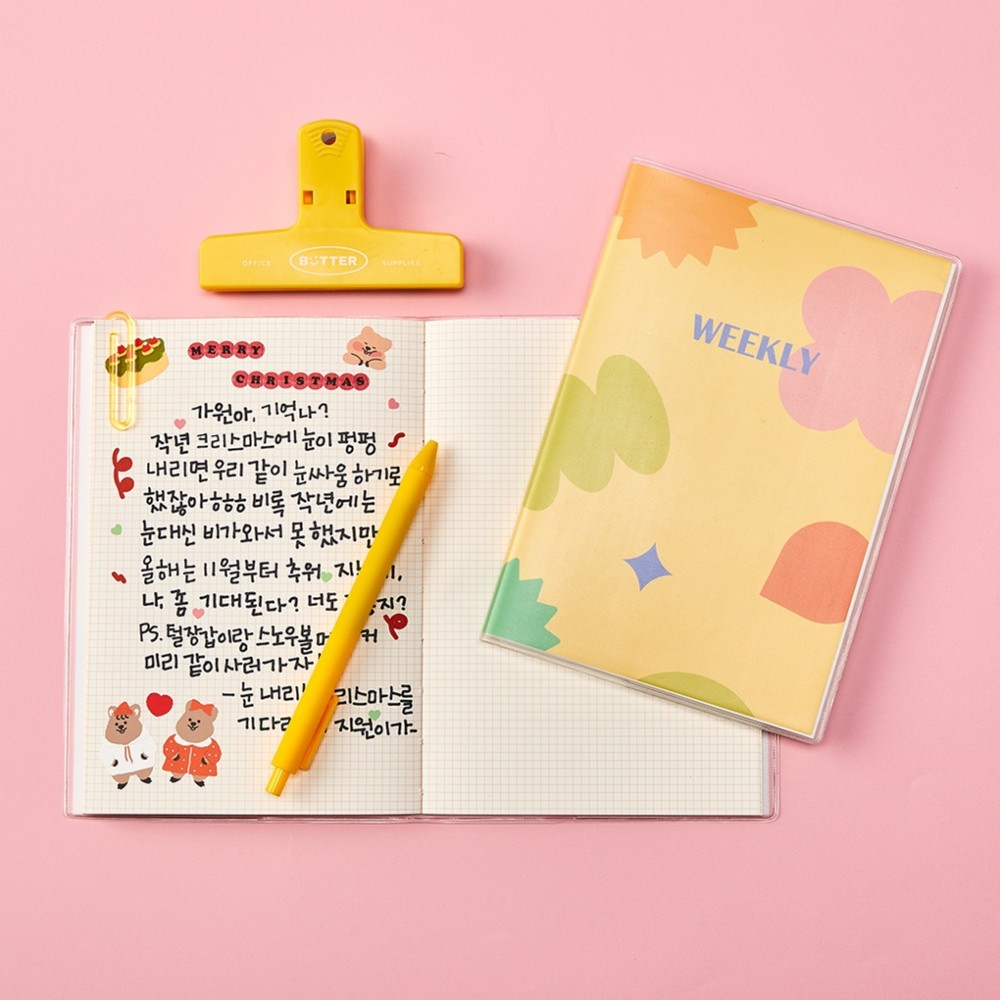 OFFICE BUTTER SUPPLIES
WEEKLY
MERRY
CHRISTMAS
가원아, 기억나?
작년 크리스마스에 눈이 펑펑
내리면 우리 같이 눈싸움 하기로
했잖아ㅎㅎㅎ 비록 작년에는
눈대신 비가와서 못했지만
올해는 11월부터 추워
나, 좀 기대된다? 너도
PS. 털장갑이랑 스노우볼
미리 같이 사러가자
- 눈 내리
기다리 지원이가-